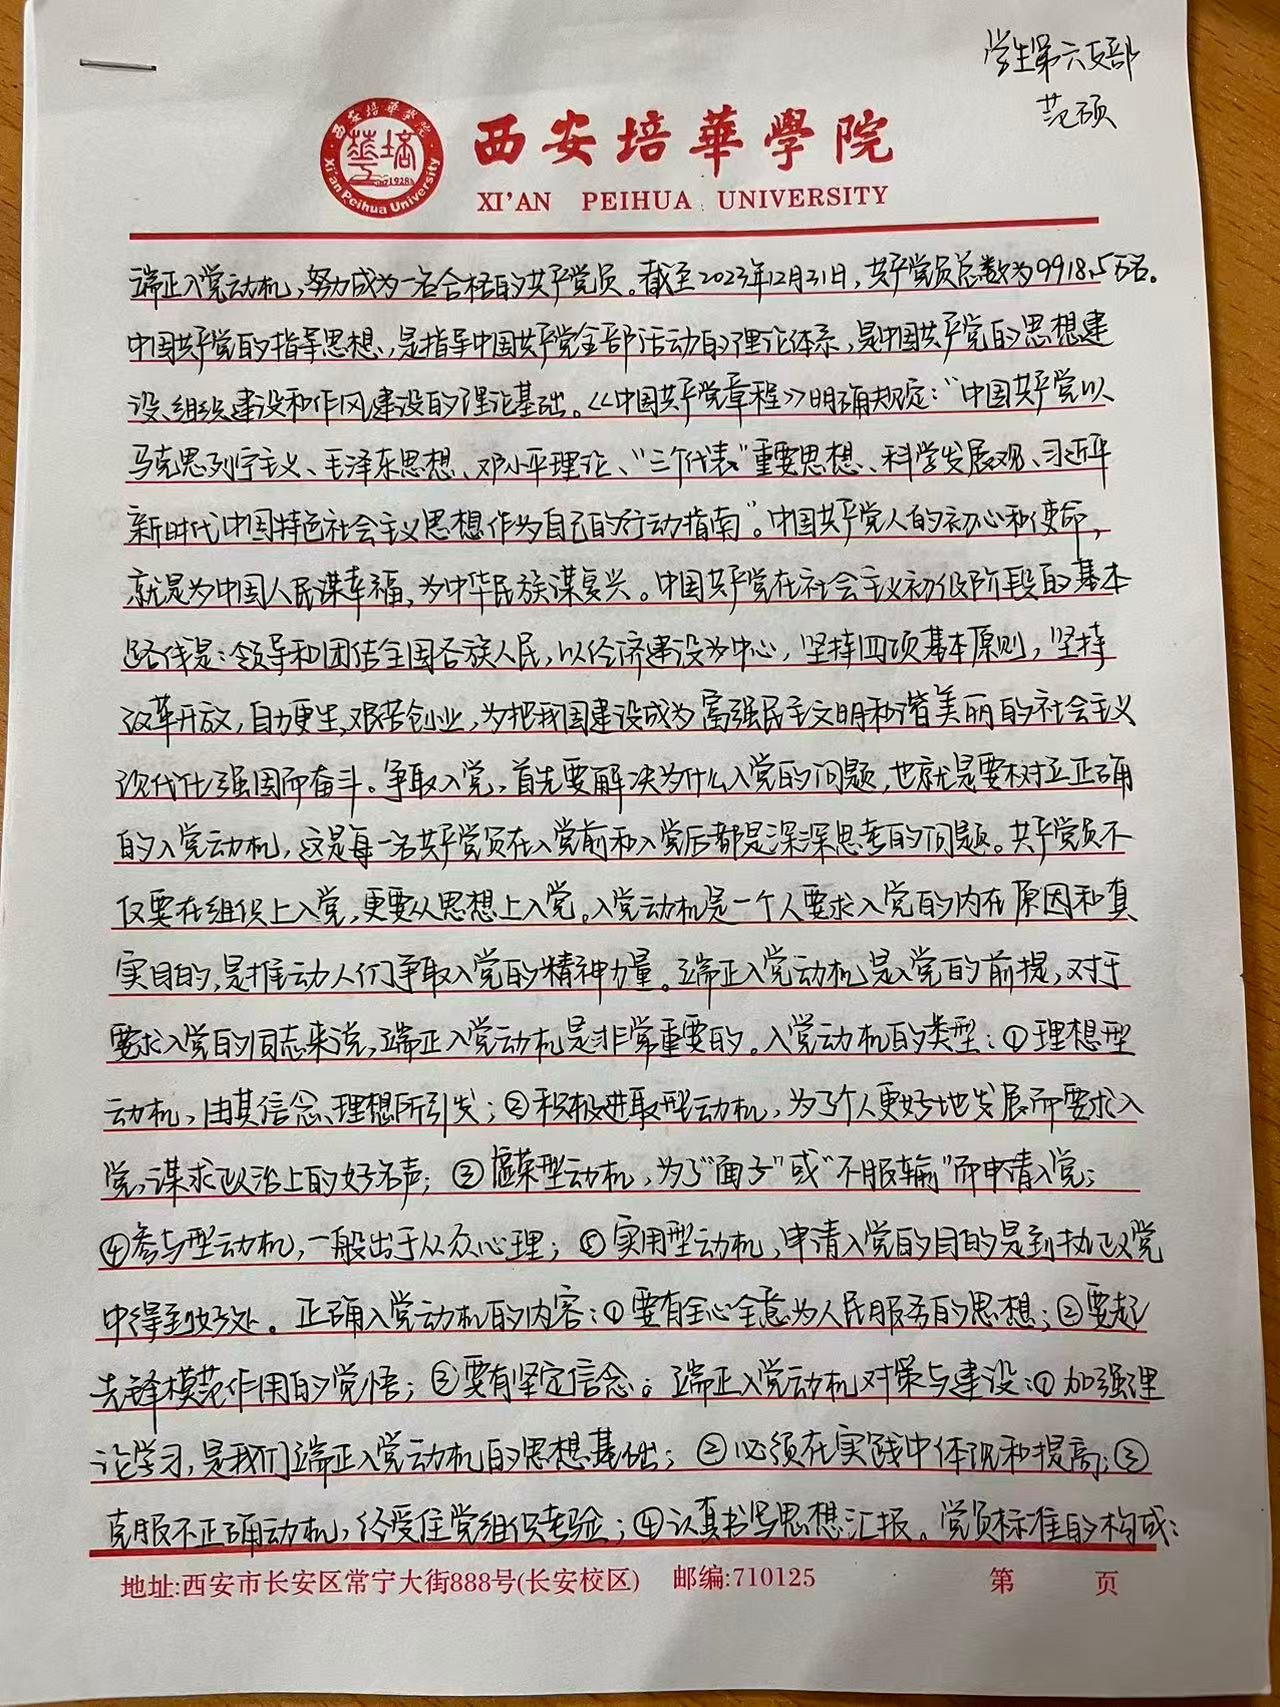 学生第六支部
范硕
西安培華學院
XI'AN PEIHUA UNIVERSITY
西安培華學院
Xi'an Peihua University
1928
端正入党动机，努力成为一名合格的共产党员。截至2023年12月31日，共产党员总数为9918.5万名。
中国共产党的指导思想，是指导中国共产党全部活动的理论体系，是中国共产党的思想建
设、组织建设和作风建设的理论基础。《中国共产党章程》明确规定：“中国共产党以
马克思列宁主义、毛泽东思想、邓小平理论、“三个代表”重要思想、科学发展观、习近平
新时代中国特色社会主义思想作为自己的行动指南”。中国共产党人的初心和使命，
就是为中国人民谋幸福，为中华民族谋复兴。中国共产党在社会主义初级阶段的基本
路线是：领导和团结全国各族人民，以经济建设为中心，坚持四项基本原则，坚持
改革开放，自力更生，艰苦创业，为把我国建设成为富强民主文明和谐美丽的社会主义
现代化强国而奋斗。争取入党，首先要解决为什么入党的问题，也就是要树立正确
的入党动机，这是每一名共产党员在入党前和入党后都是深深思考的问题。共产党员不
仅要在组织上入党，更要从思想上入党。入党动机是一个人要求入党的内在原因和真
实目的，是推动人们争取入党的精神力量。端正入党动机是入党的前提，对于
要求入党的同志来说，端正入党动机是非常重要的。入党动机的类型：①理想型
动机，由其信念、理想所引发；②积极进取型动机，为了个人更好地发展而要求入
党，谋求政治上的好名声；③虚荣型动机，为了“面子”或“不服输”而申请入党；
④参与型动机，一般出于从众心理；⑤实用型动机，申请入党的目的是到执政党
中得到好处。正确入党动机的内容：①要有全心全意为人民服务的思想；②要起
先锋模范作用的觉悟；③要有坚定信念。端正入党动机对策与建设：①加强理
论学习，是我们端正入党动机的思想基础；②必须在实践中体现和提高；③
克服不正确动机，经受住党组织考验；④认真书写思想汇报。党员标准的构成：
地址:西安市长安区常宁大街888号(长安校区) 邮编:710125 第 页